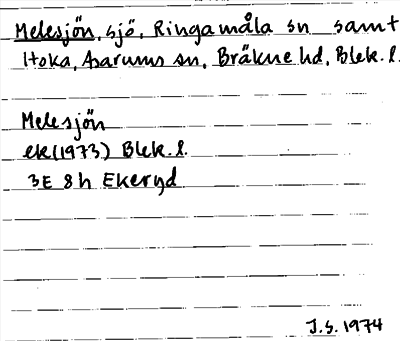 Melesjön, sjö, Ringamåla sn samt
Hoka, Asarums sn, Bräkne hd, Blek. l.
Melesjön
ek (1973) Blek. l.
3E 8h Ekeryd
J.S. 1974